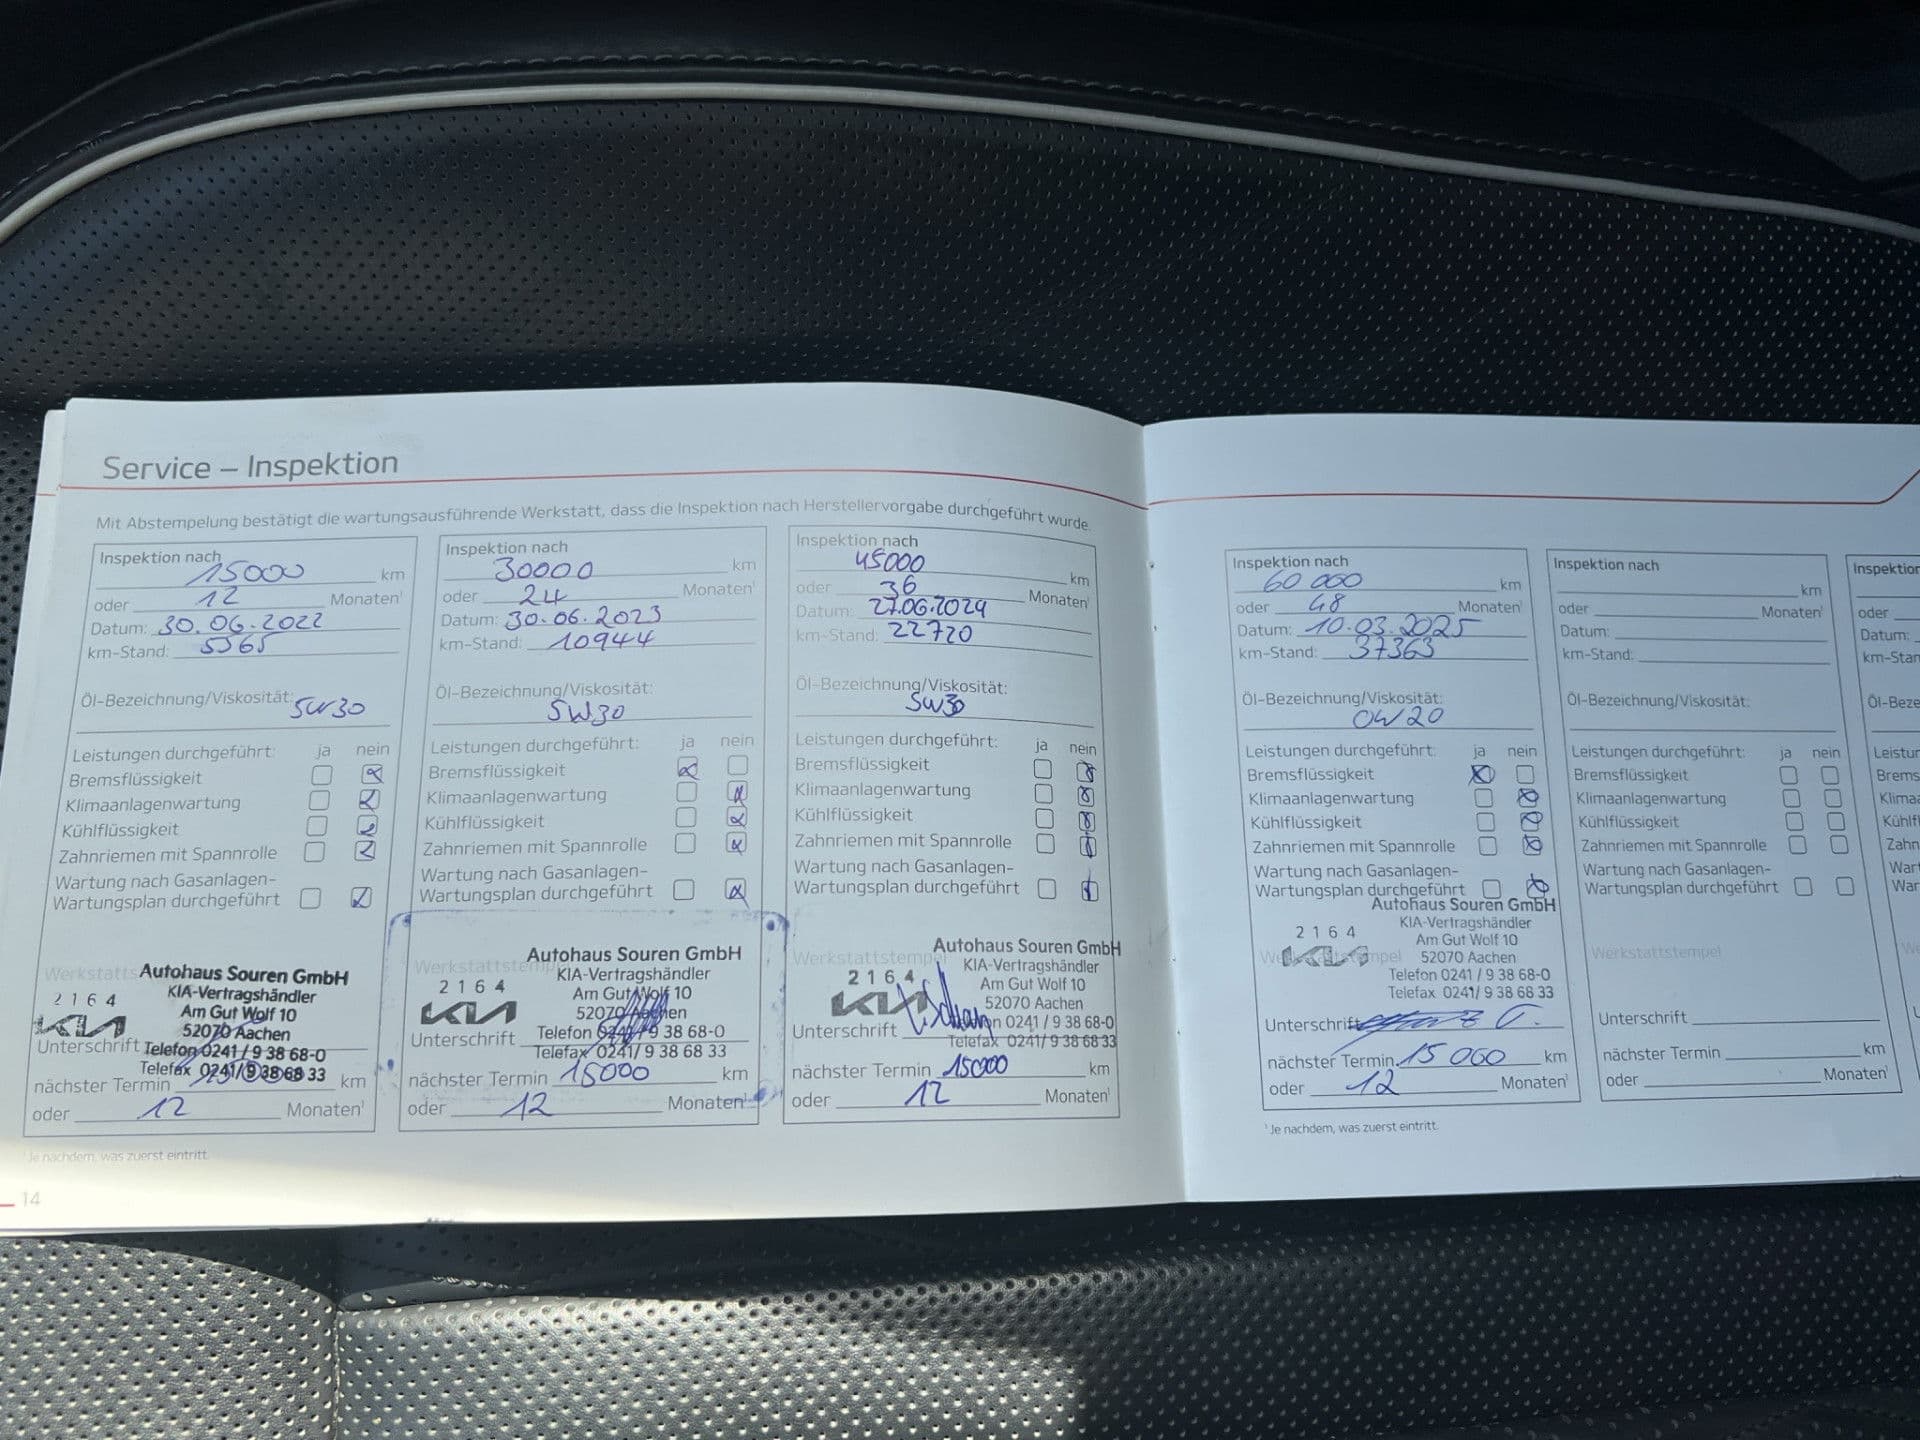 Service – Inspektion
Mit Abstempelung bestätigt die wartungsausführende Werkstatt, dass die Inspektion nach Herstellervorgabe durchgeführt wurde.
Inspektion nach
15000 km
oder 12 Monaten¹
Datum: 30.06.2022
km-Stand: 5565
Öl-Bezeichnung/Viskosität:
5W30
Leistungen durchgeführt: ja nein
Bremsflüssigkeit
Klimaanlagenwartung
Kühlflüssigkeit
Zahnriemen mit Spannrolle
Wartung nach Gasanlagen-
Wartungsplan durchgeführt
Autohaus Souren GmbH
2164 KIA-Vertragshändler
KIA Am Gut Wolf 10
52070 Aachen
Unterschrift Telefon 0241 / 9 38 68-0
Telefax 0241/ 9 38 68 33
nächster Termin 15000 km
oder 12 Monaten¹
¹Je nachdem, was zuerst eintritt.
14
Inspektion nach
30000 km
oder 24 Monaten¹
Datum: 30.06.2023
km-Stand: 10944
Öl-Bezeichnung/Viskosität:
5W30
Leistungen durchgeführt: ja nein
Bremsflüssigkeit
Klimaanlagenwartung
Kühlflüssigkeit
Zahnriemen mit Spannrolle
Wartung nach Gasanlagen-
Wartungsplan durchgeführt
Werkstattstempel
Autohaus Souren GmbH
2164 KIA-Vertragshändler
KIA Am Gut Wolf 10
52070 Aachen
Unterschrift Telefon 0241 / 9 38 68-0
Telefax 0241/ 9 38 68 33
nächster Termin 15000 km
oder 12 Monaten¹
Inspektion nach
45000 km
oder 36 Monaten¹
Datum: 27.06.2024
km-Stand: 22720
Öl-Bezeichnung/Viskosität:
5W30
Leistungen durchgeführt: ja nein
Bremsflüssigkeit
Klimaanlagenwartung
Kühlflüssigkeit
Zahnriemen mit Spannrolle
Wartung nach Gasanlagen-
Wartungsplan durchgeführt
Werkstattstempel
Autohaus Souren GmbH
2164 KIA-Vertragshändler
KIA Am Gut Wolf 10
52070 Aachen
Unterschrift Telefon 0241 / 9 38 68-0
Telefax 0241/ 9 38 68 33
nächster Termin 15000 km
oder 12 Monaten¹
Inspektion nach
60 000 km
oder 48 Monaten¹
Datum: 10.03.2025
km-Stand: 37363
Öl-Bezeichnung/Viskosität:
0W20
Leistungen durchgeführt: ja nein
Bremsflüssigkeit
Klimaanlagenwartung
Kühlflüssigkeit
Zahnriemen mit Spannrolle
Wartung nach Gasanlagen-
Wartungsplan durchgeführt
Autohaus Souren GmbH
KIA-Vertragshändler
2164 Am Gut Wolf 10
KIA 52070 Aachen
Telefon 0241 / 9 38 68-0
Telefax 0241/ 9 38 68 33
Unterschrift
nächster Termin 15 000 km
oder 12 Monaten¹
¹Je nachdem, was zuerst eintritt.
Inspektion nach
km
oder Monaten¹
Datum:
km-Stand:
Öl-Bezeichnung/Viskosität:
Leistungen durchgeführt: ja nein
Bremsflüssigkeit
Klimaanlagenwartung
Kühlflüssigkeit
Zahnriemen mit Spannrolle
Wartung nach Gasanlagen-
Wartungsplan durchgeführt
Werkstattstempel
Unterschrift
nächster Termin km
oder Monaten¹
oder
Datum: